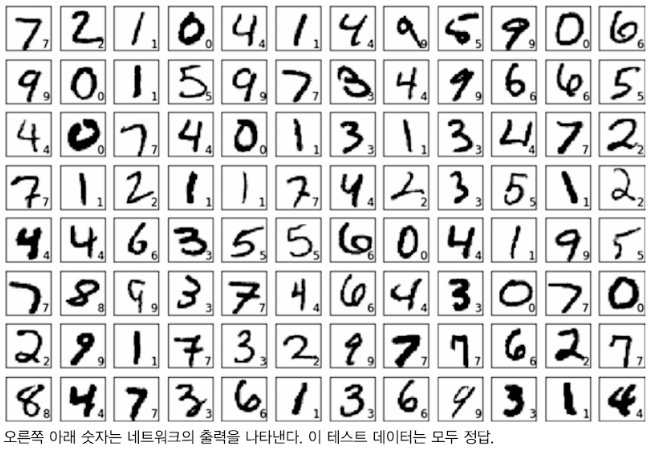 7 7 2 2 1 1 0 0 4 4 1 1 4 4 9 9 5 5 9 9 0 0 6 6
9 9 0 0 1 1 5 5 9 9 7 7 3 3 4 4 9 9 6 6 6 6 5 5
4 4 0 0 7 7 4 4 0 0 1 1 3 3 1 1 3 3 4 4 7 7 2 2
7 7 1 1 2 2 1 1 1 1 7 7 4 4 2 2 3 3 5 5 1 1 2 2
4 4 4 4 6 6 3 3 5 5 5 5 6 6 0 0 4 4 1 1 9 9 5 5
7 7 8 8 9 9 3 3 7 7 4 4 6 6 4 4 3 3 0 0 7 7 0 0
2 2 9 9 1 1 7 7 3 3 2 2 9 9 7 7 7 7 6 6 2 2 7 7
8 8 4 4 7 7 3 3 6 6 1 1 3 3 6 6 9 9 3 3 1 1 4 4
오른쪽 아래 숫자는 네트워크의 출력을 나타낸다. 이 테스트 데이터는 모두 정답.